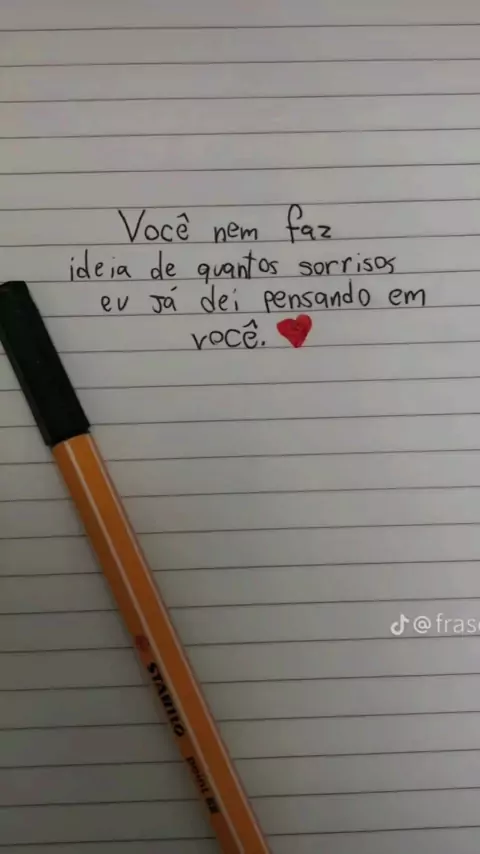 Você nem faz
ideia de quantos sorrisos
eu já dei pensando em
você.
@fras
STABILO
point